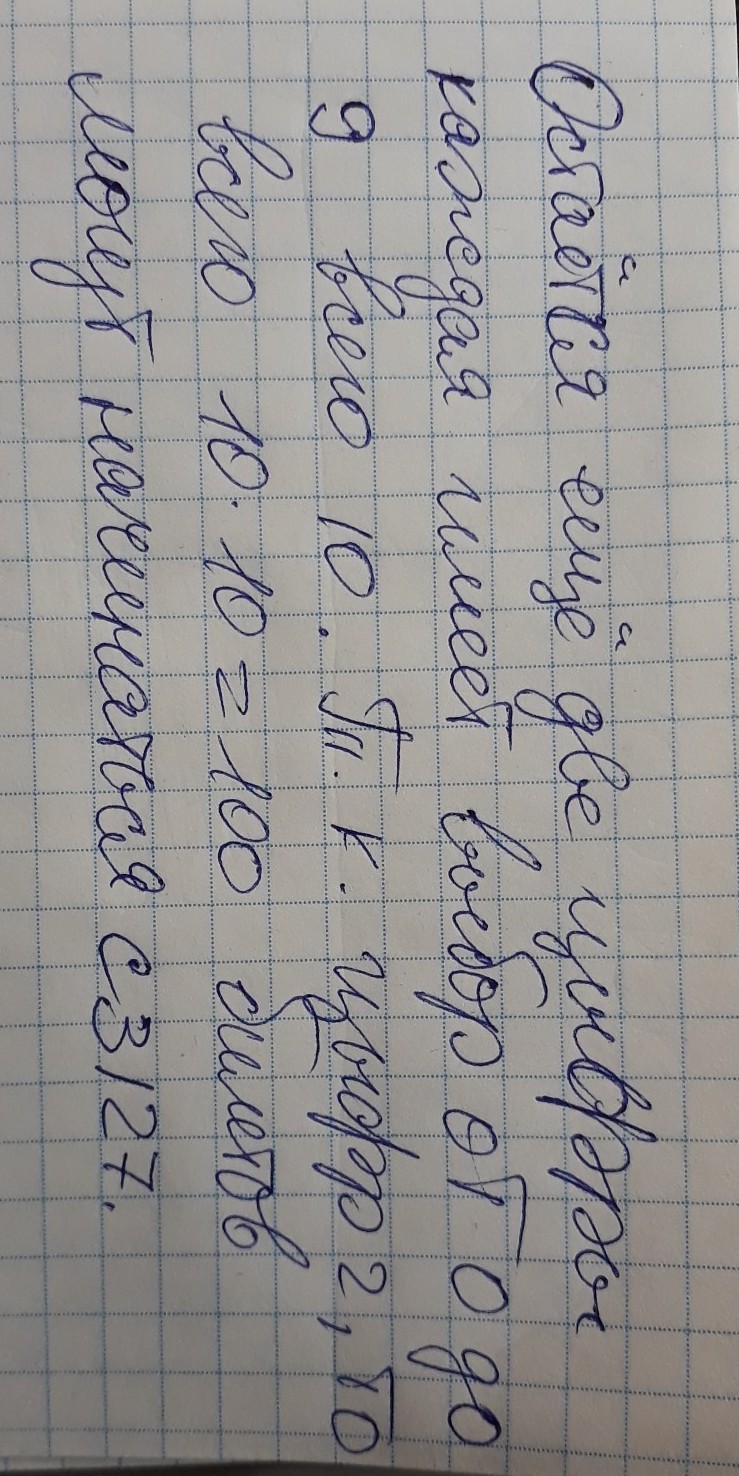 Остаётся ещё две цыфры
каждая имеет выбор от 0 до
9 всего 10. Т.к. цыфр 2, то
всего 10·10=100 билетов
могут наченаться с 3127.